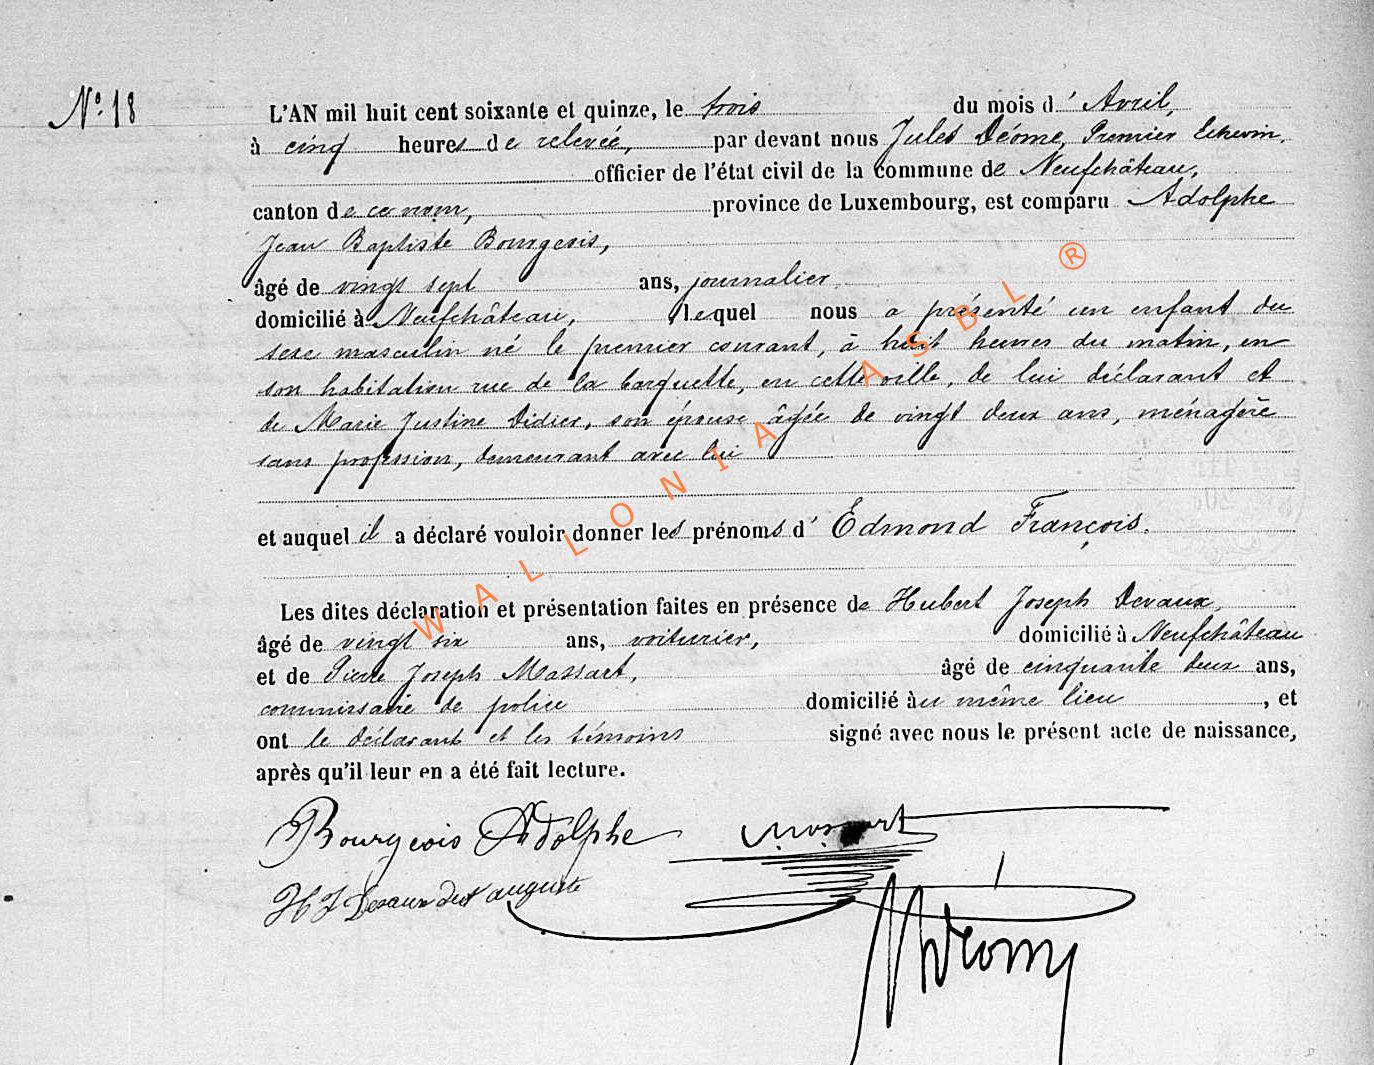 N° 18
L'AN mil huit cent soixante et quinze, le trois du mois d' Avril,
à cinq heures de relevée, par devant nous Jules Déome, Premier Echevin,
officier de l'état civil de la commune de Neufchâteau,
canton de ce nom, province de Luxembourg, est comparu Adolphe
Jean Baptiste Bourgeois,
âgé de vingt sept ans, journalier,
domicilié à Neufchâteau, lequel nous a présenté un enfant du
sexe masculin né le premier courant, à huit heures du matin, en
son habitation rue de la barquette, en cette ville, de lui déclarant et
de Marie Justine Didier, son épouse âgée de vingt deux ans, ménagère
sans profession, demeurant avec lui
et auquel il a déclaré vouloir donner les prénoms d' Edmond François.
Les dites déclaration et présentation faites en présence de Hubert Joseph Devaux,
âgé de vingt six ans, voiturier, domicilié à Neufchâteau
et de Pierre Joseph Massart, âgé de cinquante deux ans,
commissaire de police domicilié au même lieu, et
ont le déclarant et les témoins signé avec nous le présent acte de naissance,
après qu'il leur en a été fait lecture.
Bourgeois Adolphe Massart
H J Devaux dit auguste
Déome
WALLONIA ASBL ®